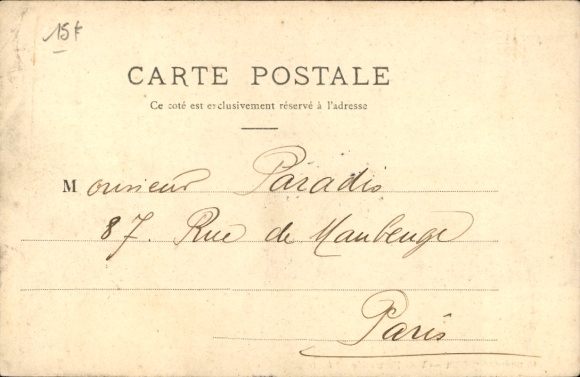 15F
CARTE POSTALE
Ce coté est exclusivement réservé à l'adresse
Monsieur Paradis
87. Rue de Maubeuge
Paris